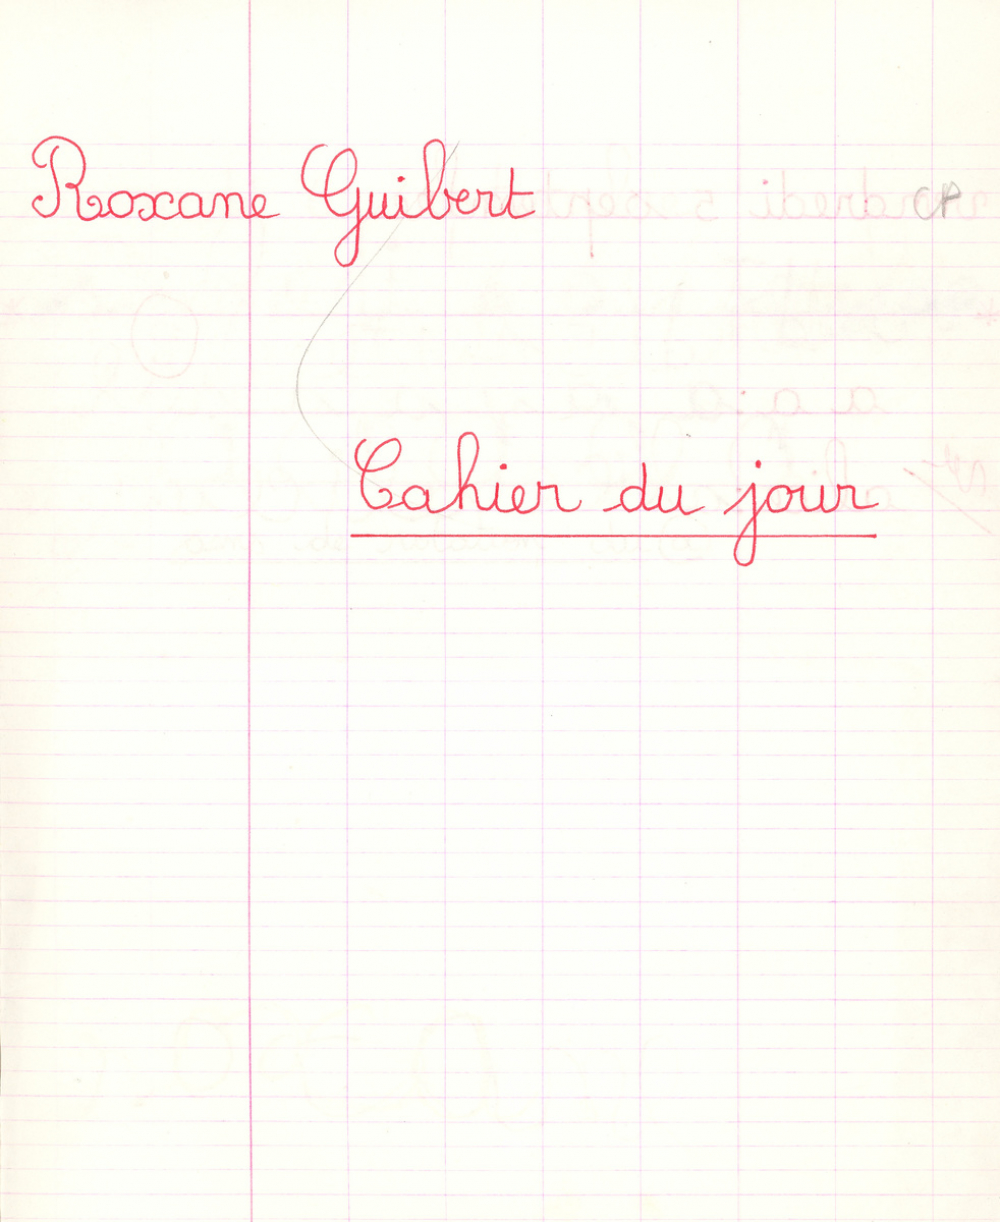 Roxane Guibert CP
Cahier du jour